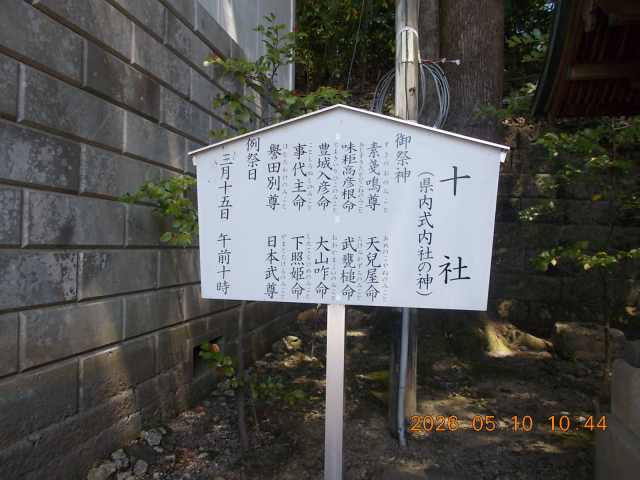 十社
（県内式内社の神）
御祭神
素戔嗚尊　天兒屋命
味耜高彦根命　武甕槌命
豊城入彦命　大山咋命
事代主命　下照姫命
譽田別尊　日本武尊
例祭日
三月十五日　午前十時
2026-05-10 10:44